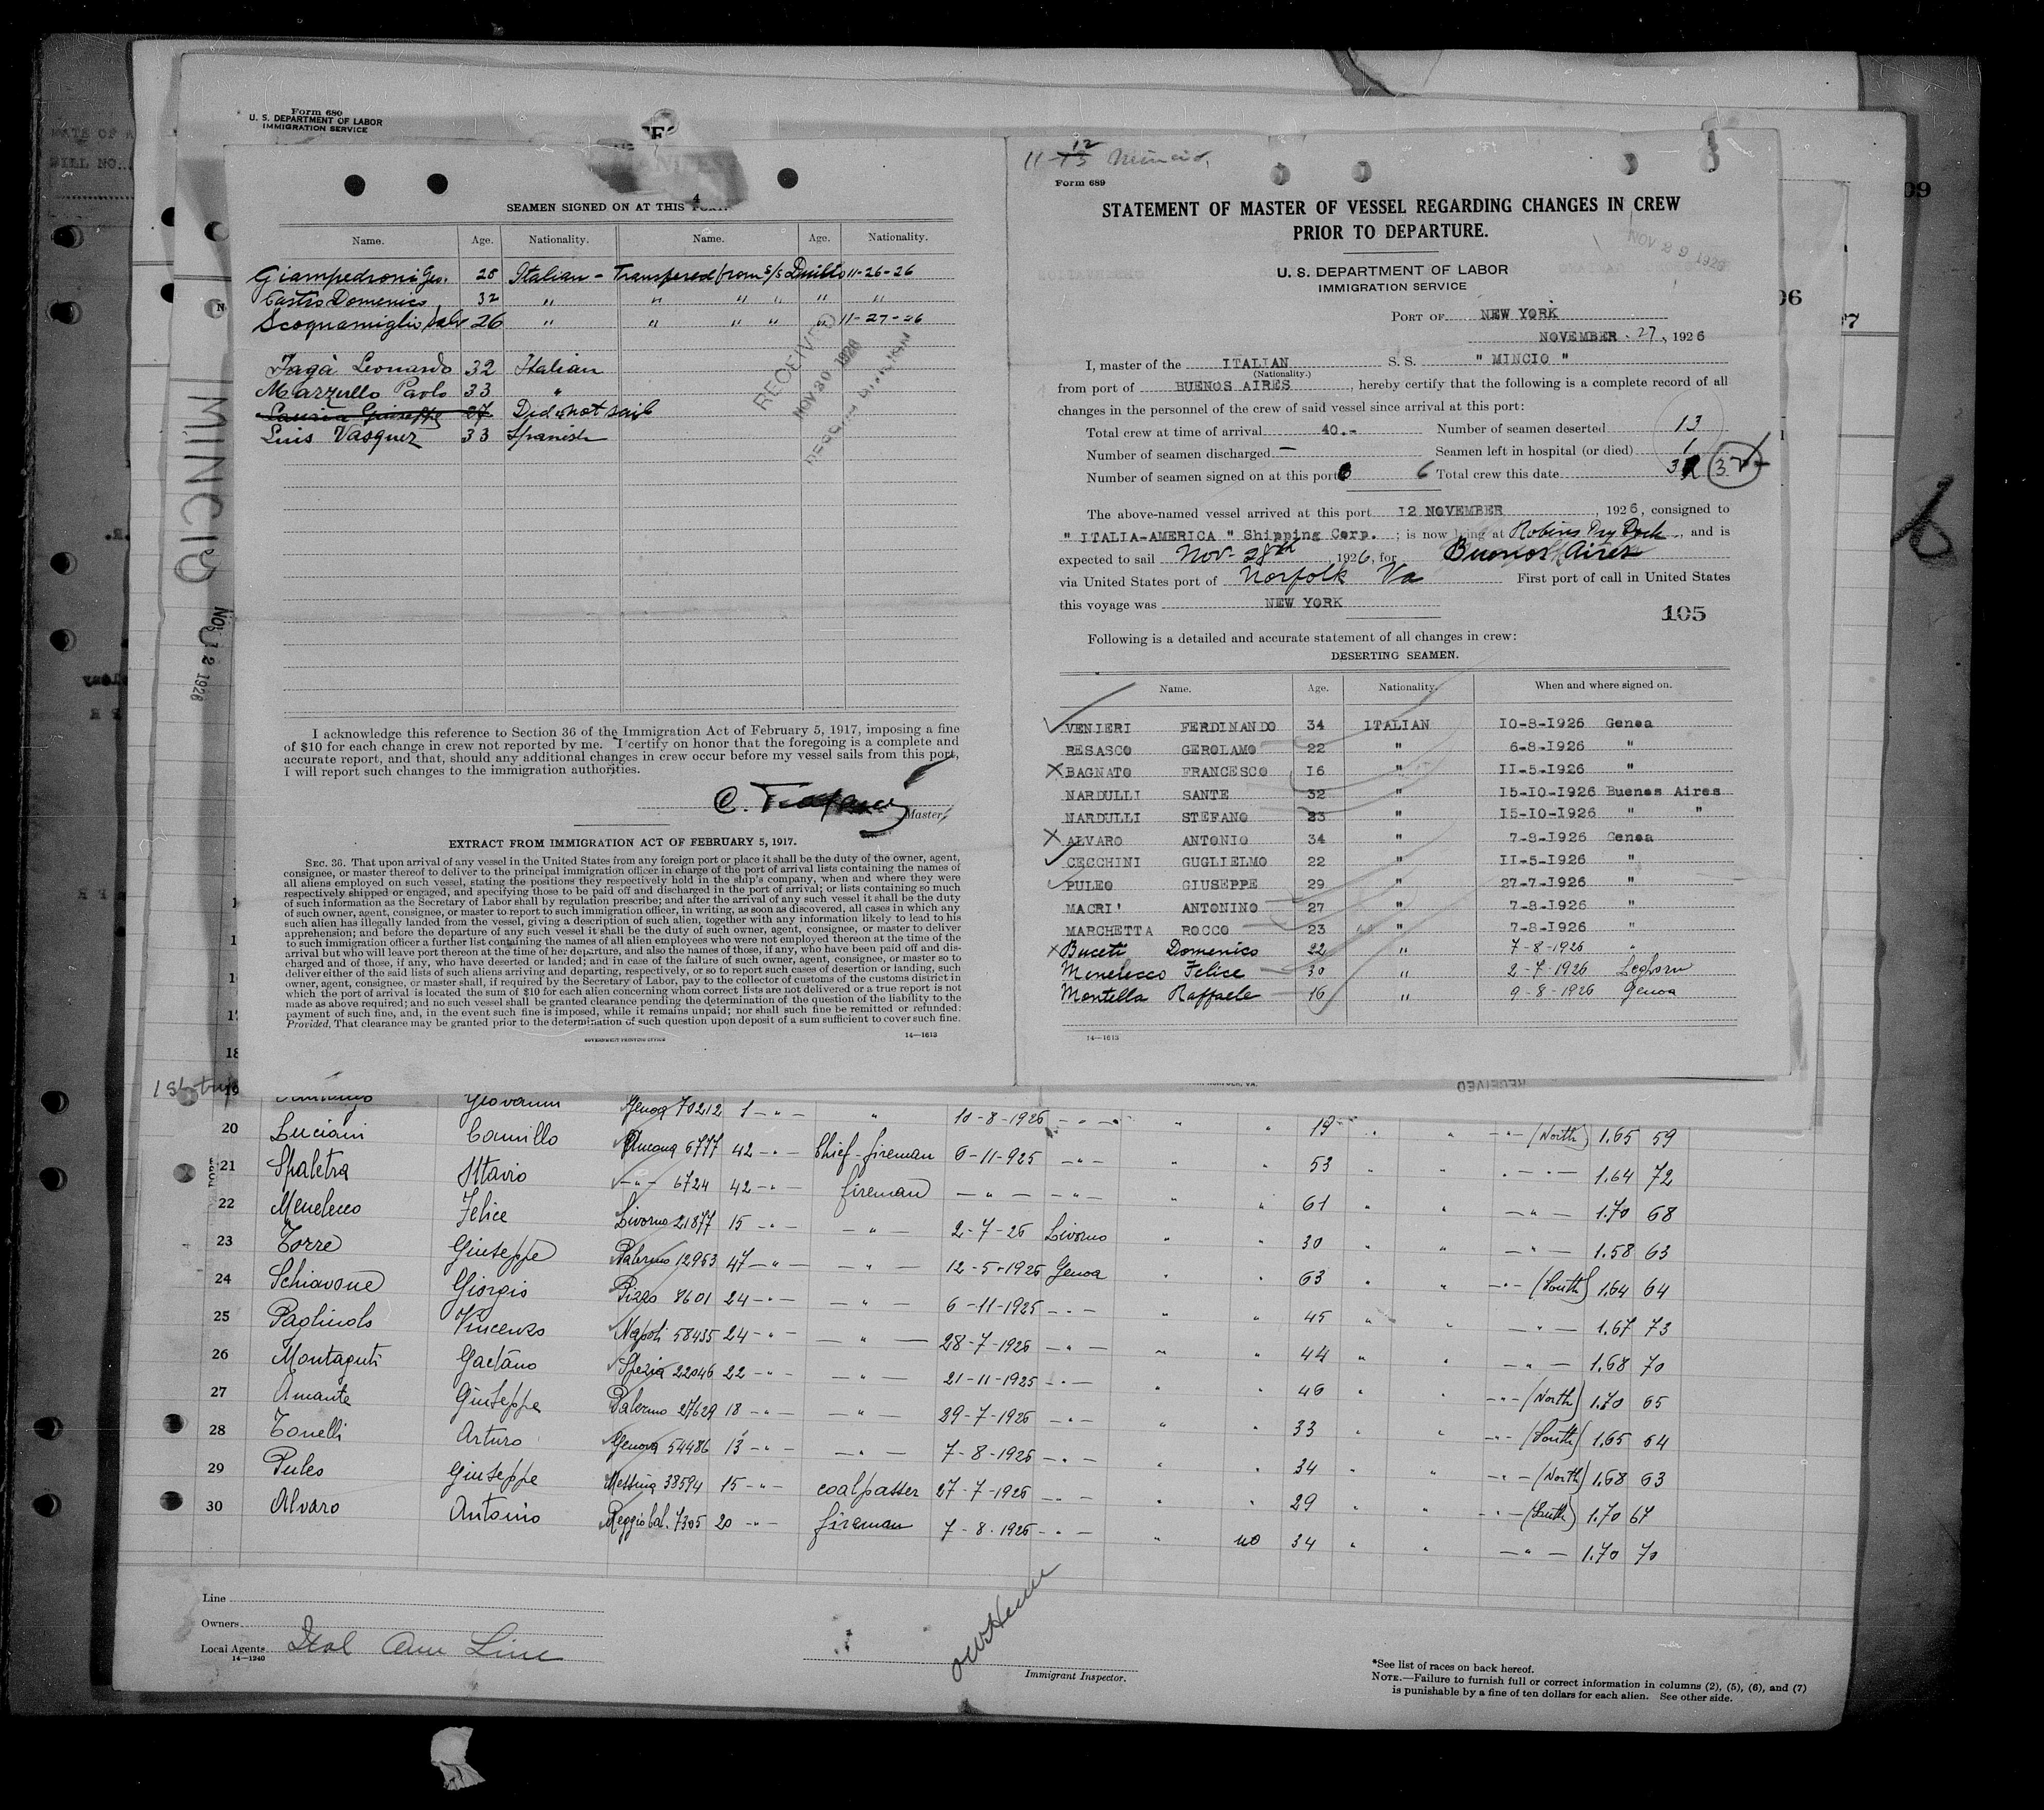 Form 680
U. S. DEPARTMENT OF LABOR
IMMIGRATION SERVICE
MINCIO
NOV 12 1926
4
SEAMEN SIGNED ON AT THIS
Name. Age. Nationality. Name. Age. Nationality.
Giampedroni Geo. 28 Italian - Transfered from s/s Duilio 11-26-26
Castro Domenico 32 " " " " " "
Scognamiglio Salv 26 " " " " " 11-27-26
Jagà Leonardo 32 Italian
Mazzullo Paolo 33 "
Lauria Giuseppe 27 Did not sail
Luis Vasquez 33 Spanish
RECEIVED
NOV 30 1926
I acknowledge this reference to Section 36 of the Immigration Act of February 5, 1917, imposing a fine
of $10 for each change in crew not reported by me. I certify on honor that the foregoing is a complete and
accurate report, and that, should any additional changes in crew occur before my vessel sails from this port,
I will report such changes to the immigration authorities.
Master.
EXTRACT FROM IMMIGRATION ACT OF FEBRUARY 5, 1917.
SEC. 36. That upon arrival of any vessel in the United States from any foreign port or place it shall be the duty of the owner, agent,
consignee, or master thereof to deliver to the principal immigration officer in charge of the port of arrival lists containing the names of
all aliens employed on such vessel, stating the positions they respectively hold in the ship's company, when and where they were
respectively shipped or engaged, and specifying those to be paid off and discharged in the port of arrival; or lists containing so much
of such information as the Secretary of Labor shall by regulation prescribe; and after the arrival of any such vessel it shall be the duty
of such owner, agent, consignee, or master to report to such immigration officer, in writing, as soon as discovered, all cases in which any
such alien has illegally landed from the vessel, giving a description of such alien, together with any information likely to lead to his
apprehension; and before the departure of any such vessel it shall be the duty of such owner, agent, consignee, or master to deliver
to such immigration officer a further list containing the names of all alien employees who were not employed thereon at the time of the
arrival but who will leave port thereon at the time of her departure, and also the names of those, if any, who have been paid off and dis-
charged and of those, if any, who have deserted or landed; and in case of the failure of such owner, agent, consignee, or master so to
deliver either of the said lists of such aliens arriving and departing, respectively, or so to report such cases of desertion or landing, such
owner, agent, consignee, or master, shall, if required by the Secretary of Labor, pay to the collector of customs of the customs district in
which the port of arrival is located the sum of $10 for each alien concerning whom correct lists are not delivered or a true report is not
made as above required; and no such vessel shall be granted clearance pending the determination of the question of the liability to the
payment of such fine, and, in the event such fine is imposed, while it remains unpaid; nor shall such fine be remitted or refunded:
Provided, That clearance may be granted prior to the determination of such question upon deposit of a sum sufficient to cover such fine.
GOVERNMENT PRINTING OFFICE 14—1613
11-12 Mincio,
Form 689
STATEMENT OF MASTER OF VESSEL REGARDING CHANGES IN CREW
PRIOR TO DEPARTURE.
NOV 29 1926
U. S. DEPARTMENT OF LABOR
IMMIGRATION SERVICE
PORT OF NEW YORK
NOVEMBER. 27, 1926
I, master of the ITALIAN S. S. " MINCIO "
(Nationality.)
from port of BUENOS AIRES, hereby certify that the following is a complete record of all
changes in the personnel of the crew of said vessel since arrival at this port:
Total crew at time of arrival 40.- Number of seamen deserted 13
Number of seamen discharged — Seamen left in hospital (or died) 1
Number of seamen signed on at this port 6 Total crew this date 32 32
The above-named vessel arrived at this port 12 NOVEMBER, 1926, consigned to
" ITALIA-AMERICA " Shipping Corp. ; is now lying at Robins Dry Dock, and is
expected to sail Nov- 28th, 1926, for Buenos Aires
via United States port of Norfolk Va First port of call in United States
this voyage was NEW YORK
105
Following is a detailed and accurate statement of all changes in crew:
DESERTING SEAMEN.
Name. Age. Nationality. When and where signed on.
VENIERI FERDINANDO 34 ITALIAN 10-8-1926 Genoa
RESASCO GEROLAMO 22 " 6-8-1926 "
X BAGNATO FRANCESCO 16 " 11-5-1926 "
NARDULLI SANTE 32 " 15-10-1926 Buenos Aires
NARDULLI STEFANO 23 " 15-10-1926 " "
X ALVARO ANTONIO 34 " 7-8-1926 Genoa
CECCHINI GUGLIELMO 22 " 11-5-1926 "
PULEO GIUSEPPE 29 " 27-7-1926 "
MACRI' ANTONINO 27 " 7-8-1926 "
MARCHETTA ROCCO 23 " 7-8-1926 "
X Buceti Domenico 22 " 7-8-1926 "
Menelecco Felice 30 " 2-7-1926 Leghorn
Montella Raffaele 16 " 9-8-1926 Genoa
14—1613
RECEIVED
18
1st trip
19 Giovanni Genoa 70212 1 -"- " 10-8-1926 -"- " " 19 " " -"- (North) 1.65 59
20 Luciani Camillo Ancona 6777 42 -"- Chief-fireman 6-11-925 -"- " " 53 " " -"- 1.64 72
21 Spaletra Ottavio -"- 6724 42 -"- fireman -"- -"- " " 61 " " -"- 1.70 68
22 Menelecco Felice Livorno 21877 15 -"- -"- 2-7-26 Livorno " " 30 " " -"- 1.58 63
23 Torre Giuseppe Palermo 12953 47 -"- -"- 12-5-1926 Genoa " " 63 " " -"- (South) 1.64 64
24 Schiavone Giorgio Pizzo 8601 24 -"- -"- 6-11-1925 -"- " " 45 " " -"- 1.67 73
25 Paglinolo Vincenzo Napoli 58435 24 -"- -"- 28-7-1926 -"- " " 44 " " -"- 1.68 70
26 Montaguti Gaetano Spezia 22046 22 -"- -"- 21-11-1925 -"- " " 46 " " -"- (North) 1.70 65
27 Amante Giuseppe Palermo 27629 18 -"- -"- 29-7-1926 -"- " " 33 " " -"- (South) 1.65 64
28 Tonelli Arturo Genova 54486 13 -"- -"- 7-8-1926 -"- " " 34 " " -"- (North) 1.68 63
29 Puleo Giuseppe Messina 38594 15 -"- coalpasser 27-7-1926 -"- " " 29 " " -"- (South) 1.70 67
30 Alvaro Antonio Reggio Cal. 7305 20 -"- fireman 7-8-1926 -"- " no 34 " " -"- 1.70 70
Line
Owners
Local Agents Ital Am Line
14—1240
Immigrant Inspector.
*See list of races on back hereof.
NOTE.—Failure to furnish full or correct information in columns (2), (5), (6), and (7)
is punishable by a fine of ten dollars for each alien. See other side.